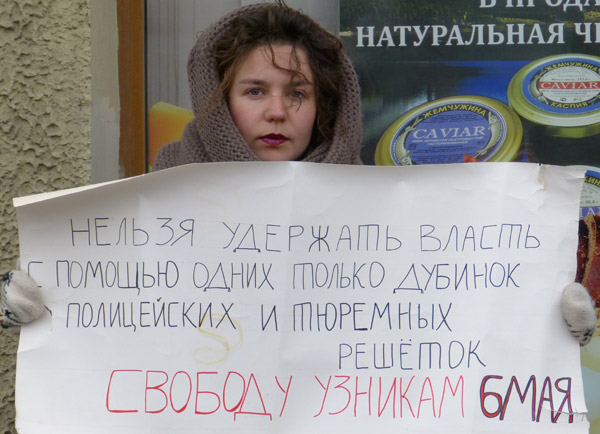 В ПРОДА
НАТУРАЛЬНАЯ ЧЕ
ЖЕМЧУЖИНА
CAVIAR
КАСПИЯ
ЖЕМЧУЖИНА
CAVIAR
НЕЛЬЗЯ УДЕРЖАТЬ ВЛАСТЬ
С ПОМОЩЬЮ ОДНИХ ТОЛЬКО ДУБИНОК
ПОЛИЦЕЙСКИХ И ТЮРЕМНЫХ
РЕШЁТОК
СВОБОДУ УЗНИКАМ 6 МАЯ